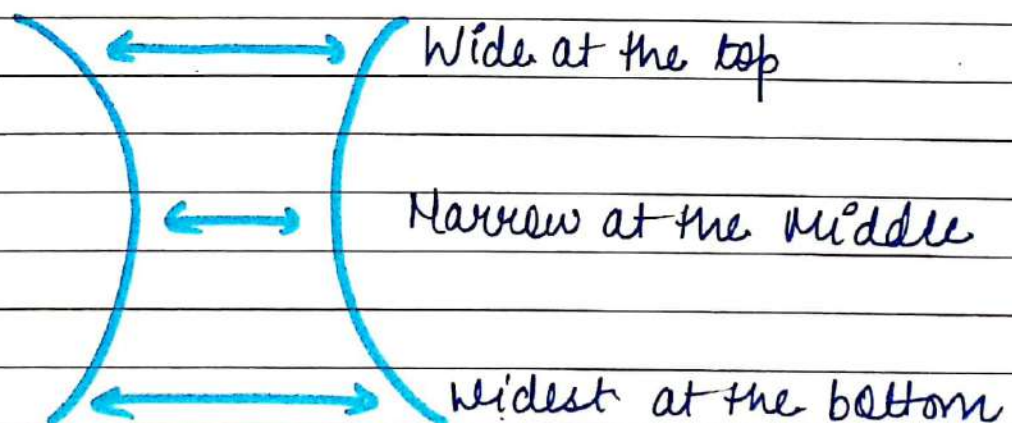 Wide at the top
Narrow at the Middle
Widest at the bottom